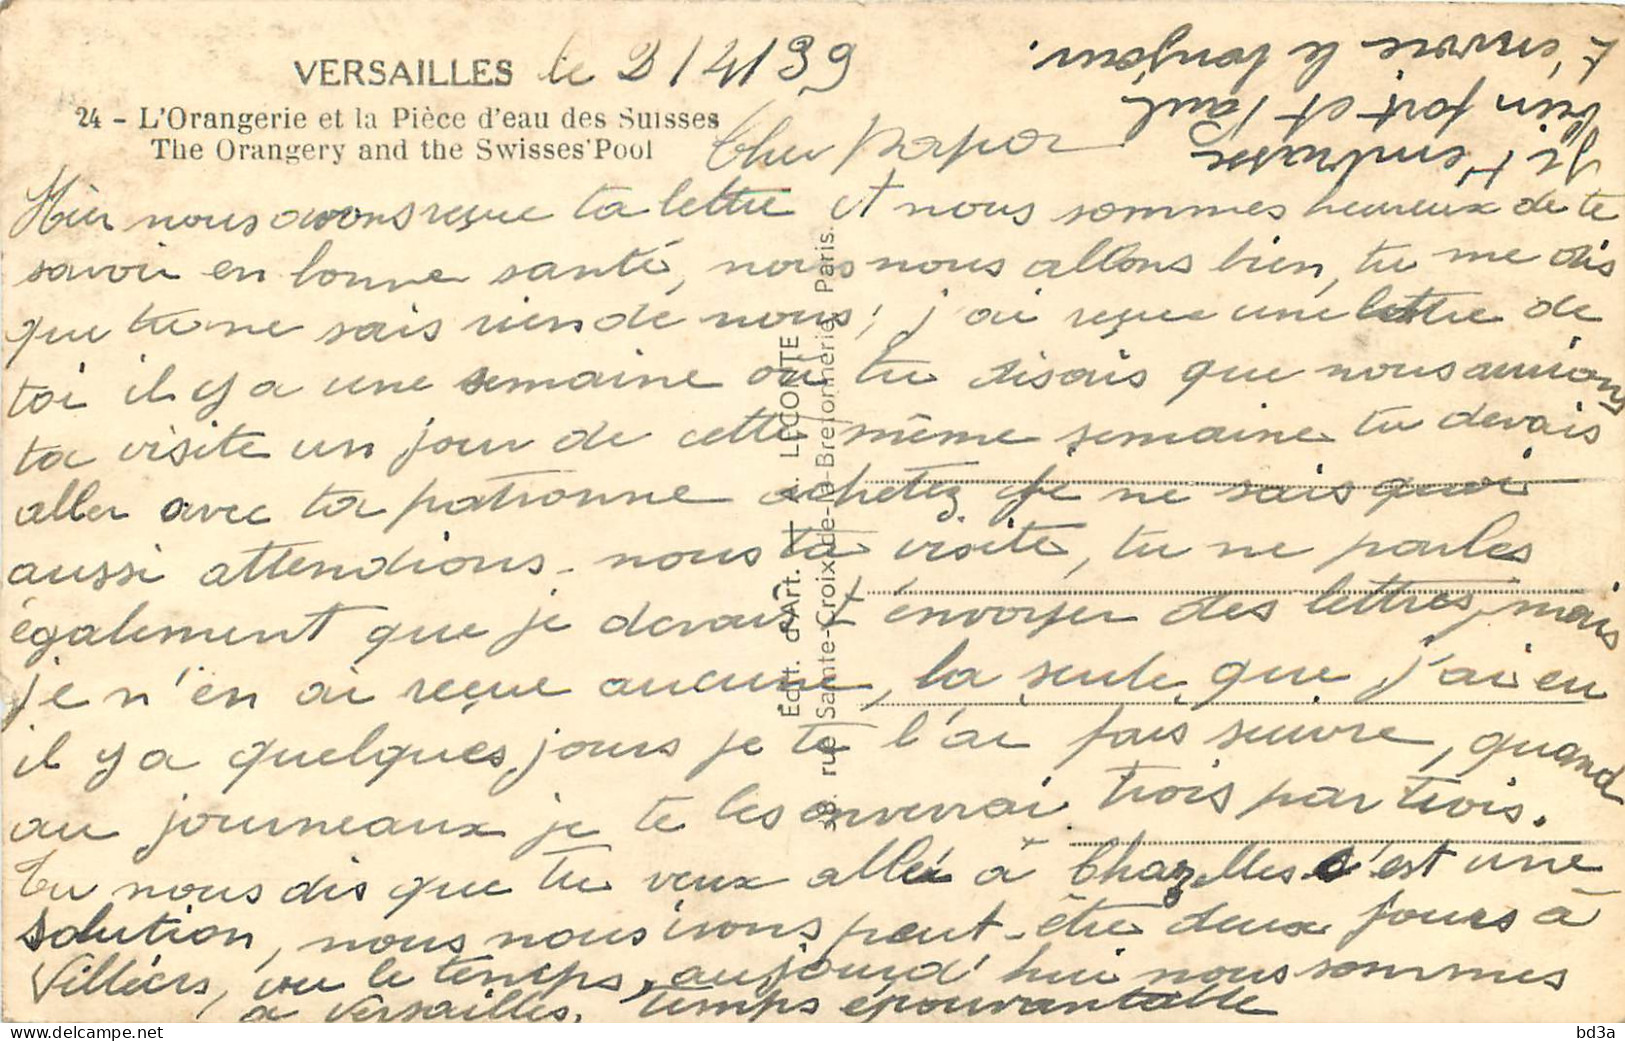 VERSAILLES le 2/4/39
24 - L'Orangerie et la Pièce d'eau des Suisses
The Orangery and the Swisses'Pool
Cher Papa
Hier nous avons reçue ta lettre et nous sommes heureux de te
savoir en bonne santé, nous nous allons bien, tu me dis
que tu ne sais rien de nous, j'ai reçue une lettre de
toi il y a une semaine où tu disais que nous aurions
ta visite un jour de cette même semaine tu devais
aller avec ta patronne achetez je ne sais quoi
aussi attendions-nous ta visite, tu ne parles
également que je devais t'envoyer des lettres, mais
je n'en ai reçue aucune, la seule que j'ai eu
il y a quelques jours je te l'ai fais suivre, quand
au journeaux je te les enverrai trois par trois.
Tu nous dis que tu veux aller à Chazelles c'est une
solution, nous nous irons peut-être deux jours à
Villiers, vu le temps, aujourd'hui nous sommes
à Versailles, temps épouvantable
Je t'embrasse
bien fort et Paul
t'envoie le bonjour.
Edit. d'Art. A. LECONTE
38. rue Sainte-Croix-de-la-Bretonnerie, Paris.
bd3a